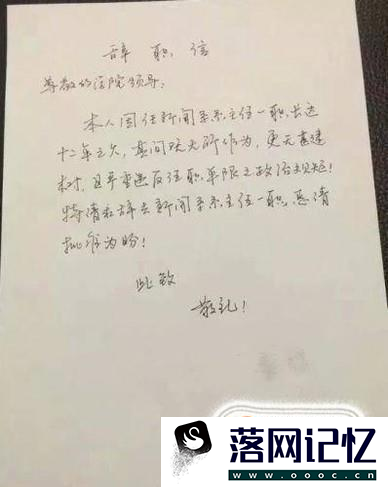 辞职信
尊敬的法院领导:
本人因任新闻系系主任一职长达
十二年之久,其间既无所作为,更无建
树,且严重违反任职年限之政治规矩!
特请求辞去新闻系系主任一职,恳请
批准为盼!
此致
敬礼!
落网记忆
www.oooc.cn